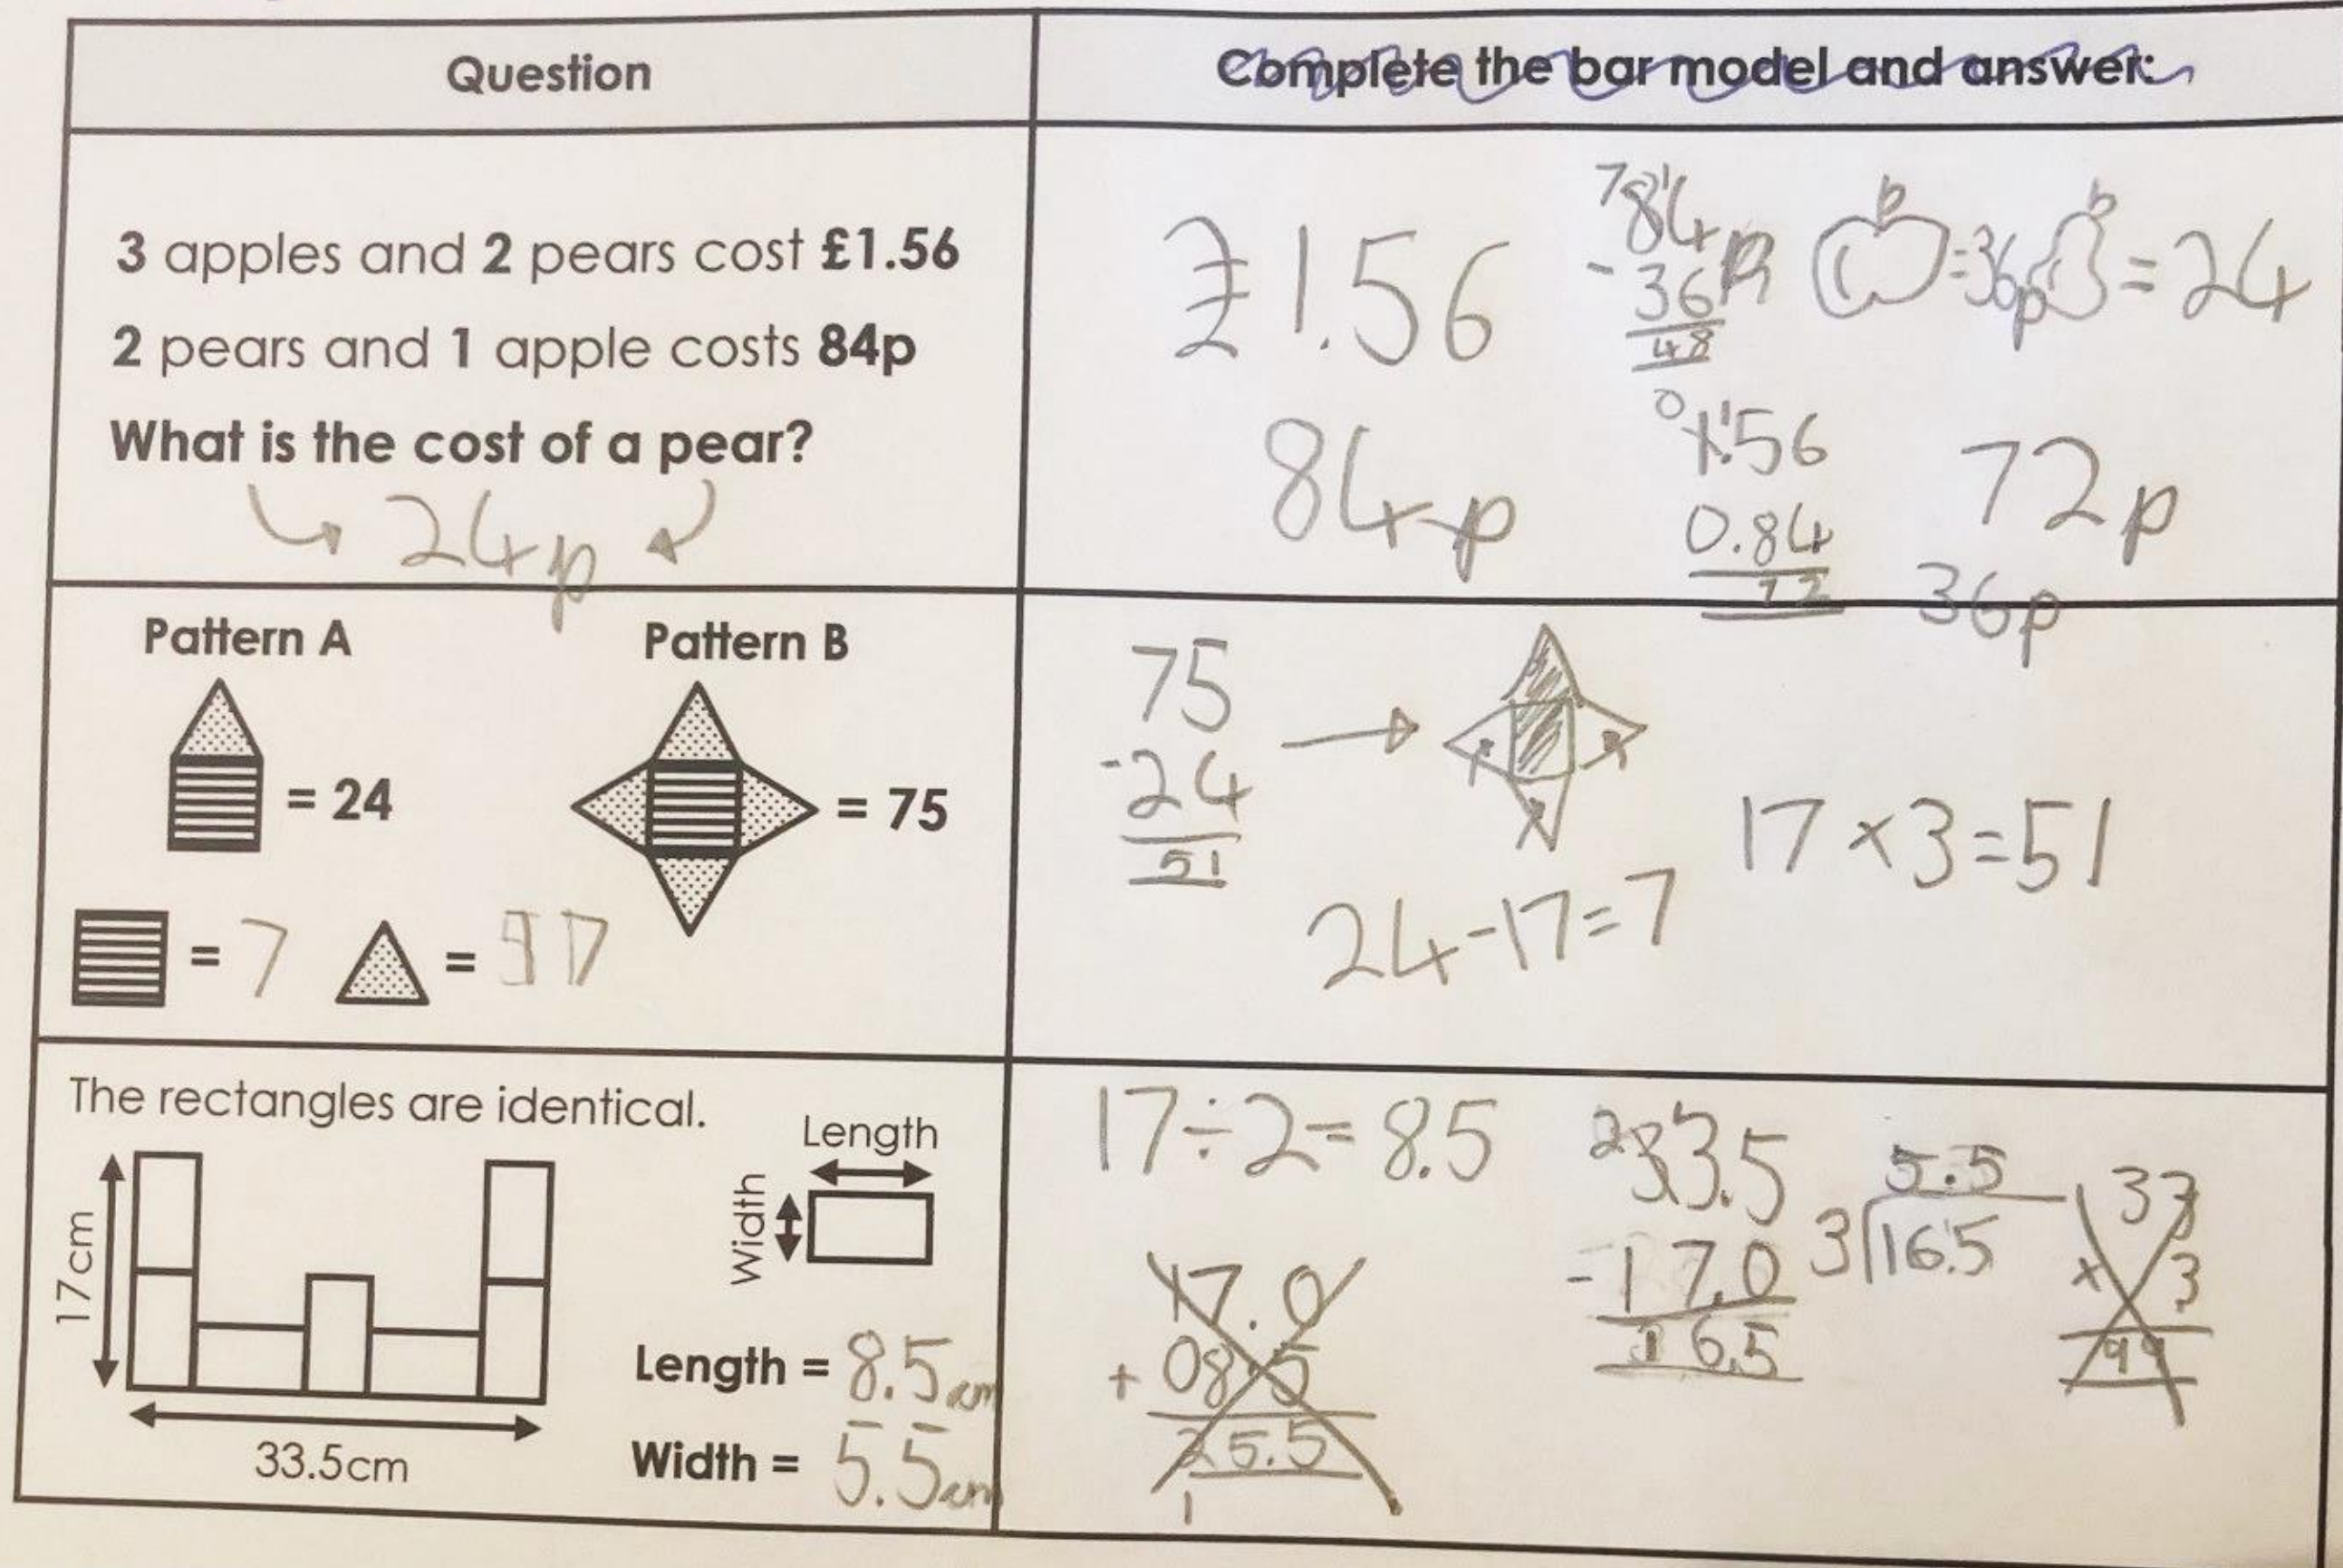 Question
Complete the bar model and answer:
3 apples and 2 pears cost £1.56
2 pears and 1 apple costs 84p
What is the cost of a pear?
24p
£1.56
84p
784p
- 36p
48
= 36p
= 24
01.56
0.84
72
72p
36p
Pattern A
Pattern B
= 24
= 75
= 7
= 17
75
-24
51
17 × 3 = 51
24 - 17 = 7
The rectangles are identical.
Length
Width
17cm
33.5cm
Length = 8.5cm
Width = 5.5cm
17 ÷ 2 = 8.5
17.0
+ 08.5
25.5
1
33.5
- 17.0
16.5
5.5
3 16.5
33
× 3
99